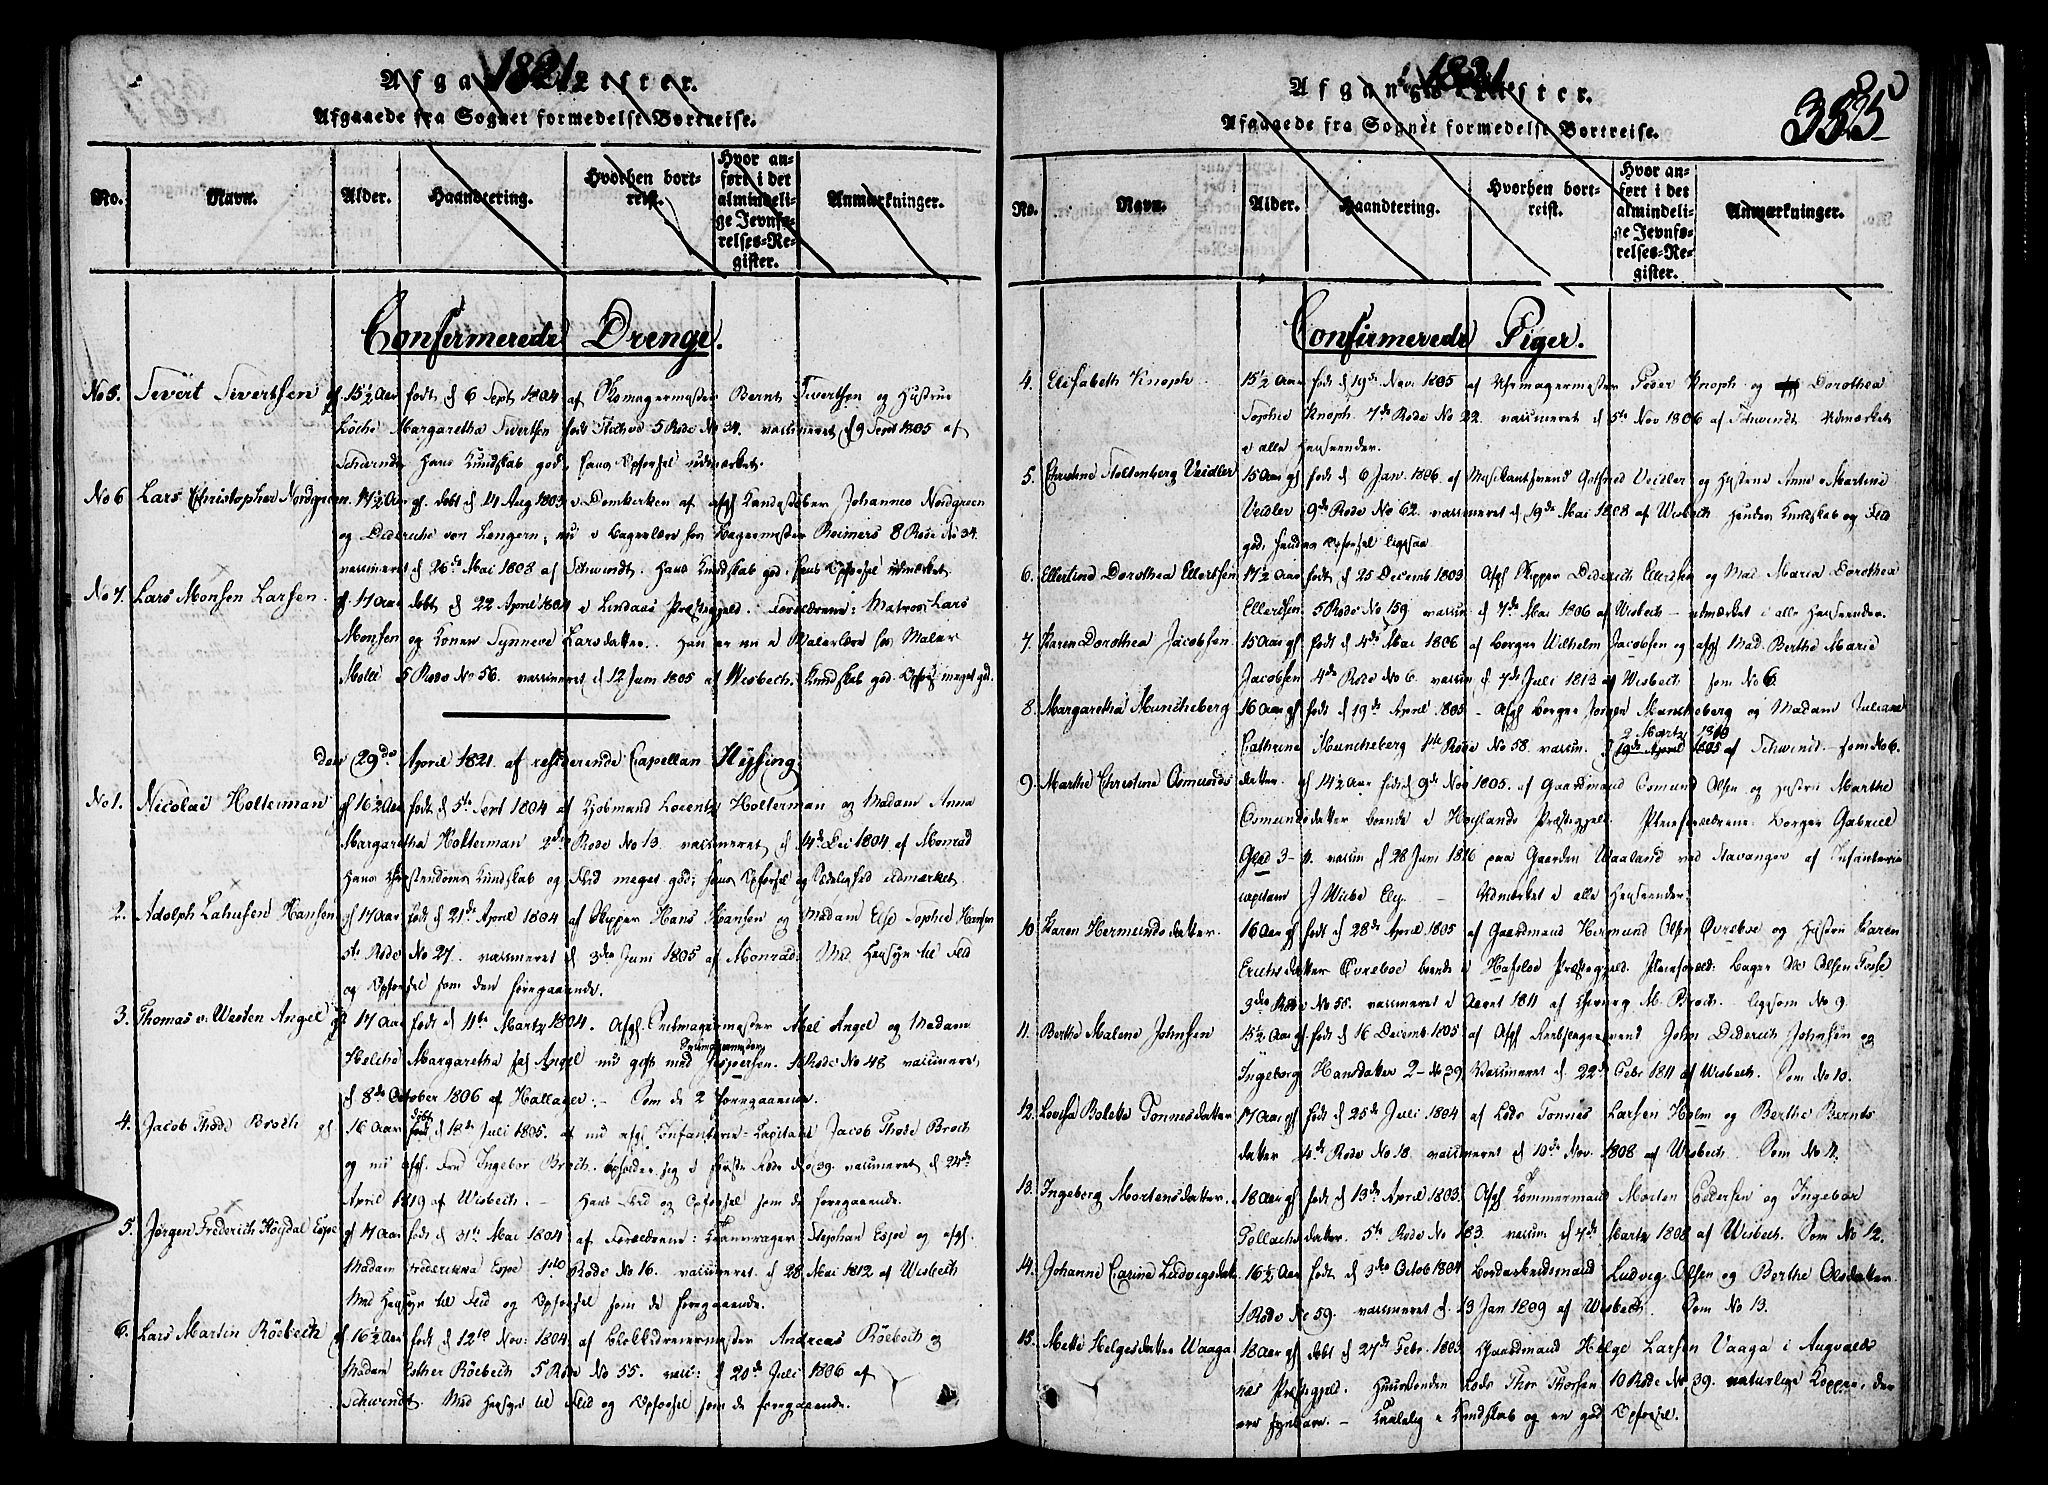 1821.
Afgangs-Lister.
Afgaaede fra Sognet formedelst Bortreise.
No. Navn. Alder. Haandtering. Hvorhen bortreist. Hvor anført i det almindelige Jevnførelses-Register. Anmærkninger.
Confirmerede Drenge.
No 5. Sivert Sivertsen gl 15½ Aar født d 6 Sept 1804 af Skomagermester Bernt Sivertsen og Hustrue
Margaretha Sivertsen 5 Rode No 34. vaccineret d 9 Sept 1805 af
Schwindt. Hans Kundskab god, hans Opførsel udmærket.
No 6 Lars Christopher Nordgreen 17½ Aar gl. døbt d 14 Aug 1803 i Domkirken af afgl Kandestøber Johannes Nordgreen
og Dideriche von Lengern, nu i Bagerlære hos Bagermester Reimers 8 Rode No 34.
vaccineret d 26de Mai 1803 af Schwindt. Hans Kundskab god, hans Opførsel udmærket
No 7. Lars Monsen Larsen gl 17 Aar døbt d 22 April 1804 i Lindaas Præstegjeld. Forældrene: Matros Lars
Monsen og Konen Synneve Larsdatter. Han er nu i Malerlære hos Maler
5 Rode No 56. vaccineret d 12 Juni 1805 af Wisbech. Kundskab god Opførs meget god.
den 29de April 1821 af residerende Capellan Heyssing
No 1. Nicolai Holterman gl 16½ Aar født d 5te Sept 1804 af Kjøbmand Lorentz Holterman og Madam Anna
Margaretha Holterman 2den Rode No 13. vaccineret d 4de Dec 1804 af Monrad
Hans Christendoms Kundskab og Flid meget god; hans Opførsel og Sædelighed udmærket
2. Adolph Lahusen Hansen gl 17 Aar født d 21de April 1804 af Skipper Hans Hansen og Madam Else Sophie Hansen
5te Rode No 27. vaccineret d 3die Juni 1805 af Monrad. Med Hensyn til Flid
og Opførsel som den foregaaende.
3. Thomas v: Westen Angel gl 17 Aar født d 11te Martz 1804. Afgl. Abel Angel og Madam
Margaretha Angel nu gift med Jespersen. 1 Rode No 48 vaccineret
d 8de October 1806 af Hallager. Som de 2 foregaaende.
4. Jacob Thode Broch gl 16 Aar døbt d 18de Juli 1805. af nu afgl. Infanterie-Capitain Jacob Thode Broch
og nu afgl. Ingebor Broch. opholder sig i første Rode No 39. vaccineret d 24de
April 1819 af Wisbech. Hans Flid og Opførsel som de foregaaende.
5. Jørgen Frederich Høysdal Espe gl 17 Aar født d 31te Mai 1804 af Forældrene: Stephan Espe og afgl.
Madam Frederikka Espe 1ste Rode No 16. vaccineret d 28 Mai 1812 af Wisbech
Med Hensyn til Flid og Opførsel som de foregaaende.
6. Lars Martin Röebech gl 16½ Aar født d 12te Nov: 1804 af Blokkedreiermester Andreas Röebech og
Madam Esther Röebech 5 Rode No 55. vacc: d 20de Juli 1806 af
Schwindt. Med Hensyn til Flid og Opførsel som de foregaaende.
1821
Afgangs-Lister.
Afgaaede fra Sognet formedelst Bortreise.
No. Navn. Alder. Haandtering. Hvorhen bortreist. Hvor anført i det almindelige Jevnførelses-Register. Anmærkninger.
Confirmerede Piger.
4. Elisabeth Knoph. 15½ Aar født d 19de Nov. 1805 af Uhrmagermester Peder Knoph og Dorothea
Sophie Knoph. 7de Rode No 22. vaccineret d 5te Nov 1806 af Schwindt Udmærket
i alle Henseender.
5. Christine Stoltenberg Veidler 15 Aar gl født d 6 Jan. 1806 af Musikantsvend Gotfred Veidler og Hustrue Anne Martine
Veidler 9de Rode No 62. vaccineret d 19de Mai 1808 af Wisbech Hendes Kundskab og Flid
god, hendes Opførsel ligesaa
6. Ellertine Dorothea Ellertsen 17½ Aar født d 25 Decemb 1803 Afgl Skipper Diderich Ellertsen og Mad. Maria Dorothea
Ellertsen 5 Rode No 159 vaccin. d 7de Mai 1806 af Wisbech - udmærket i alle Henseender.
7. Karen Dorothea Jacobsen 15 Aar gl født d 4de Mai 1806 af Borger Wilhelm Jacobsen og afgl Mad. Berthe Marie
Jacobsen 4de Rode No 6. vaccin d 7de Juli 1813 af Wisbech som No 6.
8. Margaretha Muncheberg 16 Aar gl født d 19de April 1805 - Afgl Borger Jørgen Muncheberg og Madam Juliane
Cathrine Muncheberg 1ste Rode No 58. vaccin. d 19de April 1805 af Schwindt - som No 6.
9. Marthe Christine Osmundsdatter. gl 14½ Aar født d 9de Nov 1805. af Gaardmand Osmund Olsen og Hustrue Marthe
Osmundsdatter boende i Høylands Præstegjeld. Pleieforældrene: Borger Gabriel
Glad 3- vaccin d 28 Juni 1816 paa Gaarden Waaland ved Stavanger af Infanterie
capitain J Wibe Ely. - Udmærket i alle Henseender.
10 Karen Hermundsdatter. 16 Aar gl født d 28de April 1805 af Gaardmand Hermund Olsen Øvreboe og Hustrue Karen
Erichsdatter Øvreboe boende i Hafsloe Præstegjeld. Pleieforæld: Bager Ole Olsen Fosse
3die Rode No 55. vaccineret i Aaret 1811 af M. Broch. ligesom No 9.
11. Berthe Malene Johnsen 15½ Aar gl født d 16 Decemb 1805 af Afgl John Diderich Johnsen og
Ingeborg Hansdatter 2- No 39. Vaccineret d 22de Febr 1811 af Wisbech. Som No 10.
12. Lovisa Bolette Tonnesdatter 17 Aar gl født d 25de Juli 1804 af Lods Tonnes Larsen Holm og Berthe Bernts
datter 4de Rode No 18. vaccineret d 10de Nov. 1808 af Wisbech. Som No 11.
13. Ingeborg Mortensdatter. 18 Aar gl født d 13de April 1803. Afgl Tømmermand Morten Pedersen og Ingebor
datter. 5te Rode No 183. vaccin d 7de Martz 1808 af Wisbech. Som No 12.
14. Johanne Carine Ludvigsdatr 16½ Aar født d 3die Octob 1804 Bordarbeidsmand Ludvig Olsen og Berthe Olsdatter
1 Rode No 59. vaccineret d. 13 Jan 1809 af Wisbech. Som No 13.
15. Mette Helgesdatter Waaga 18 Aar gl døbt d 27de Febr. 1803 Gaardmand Helge Larsen Vaaga i Augvalds
næs Præstegjeld. Huusbonden Lods Thor Thorsen 10 Rode No 39. naturlige Kopper, der
ere synbare. - Taalelig i Kundskab og en god Opførsel.